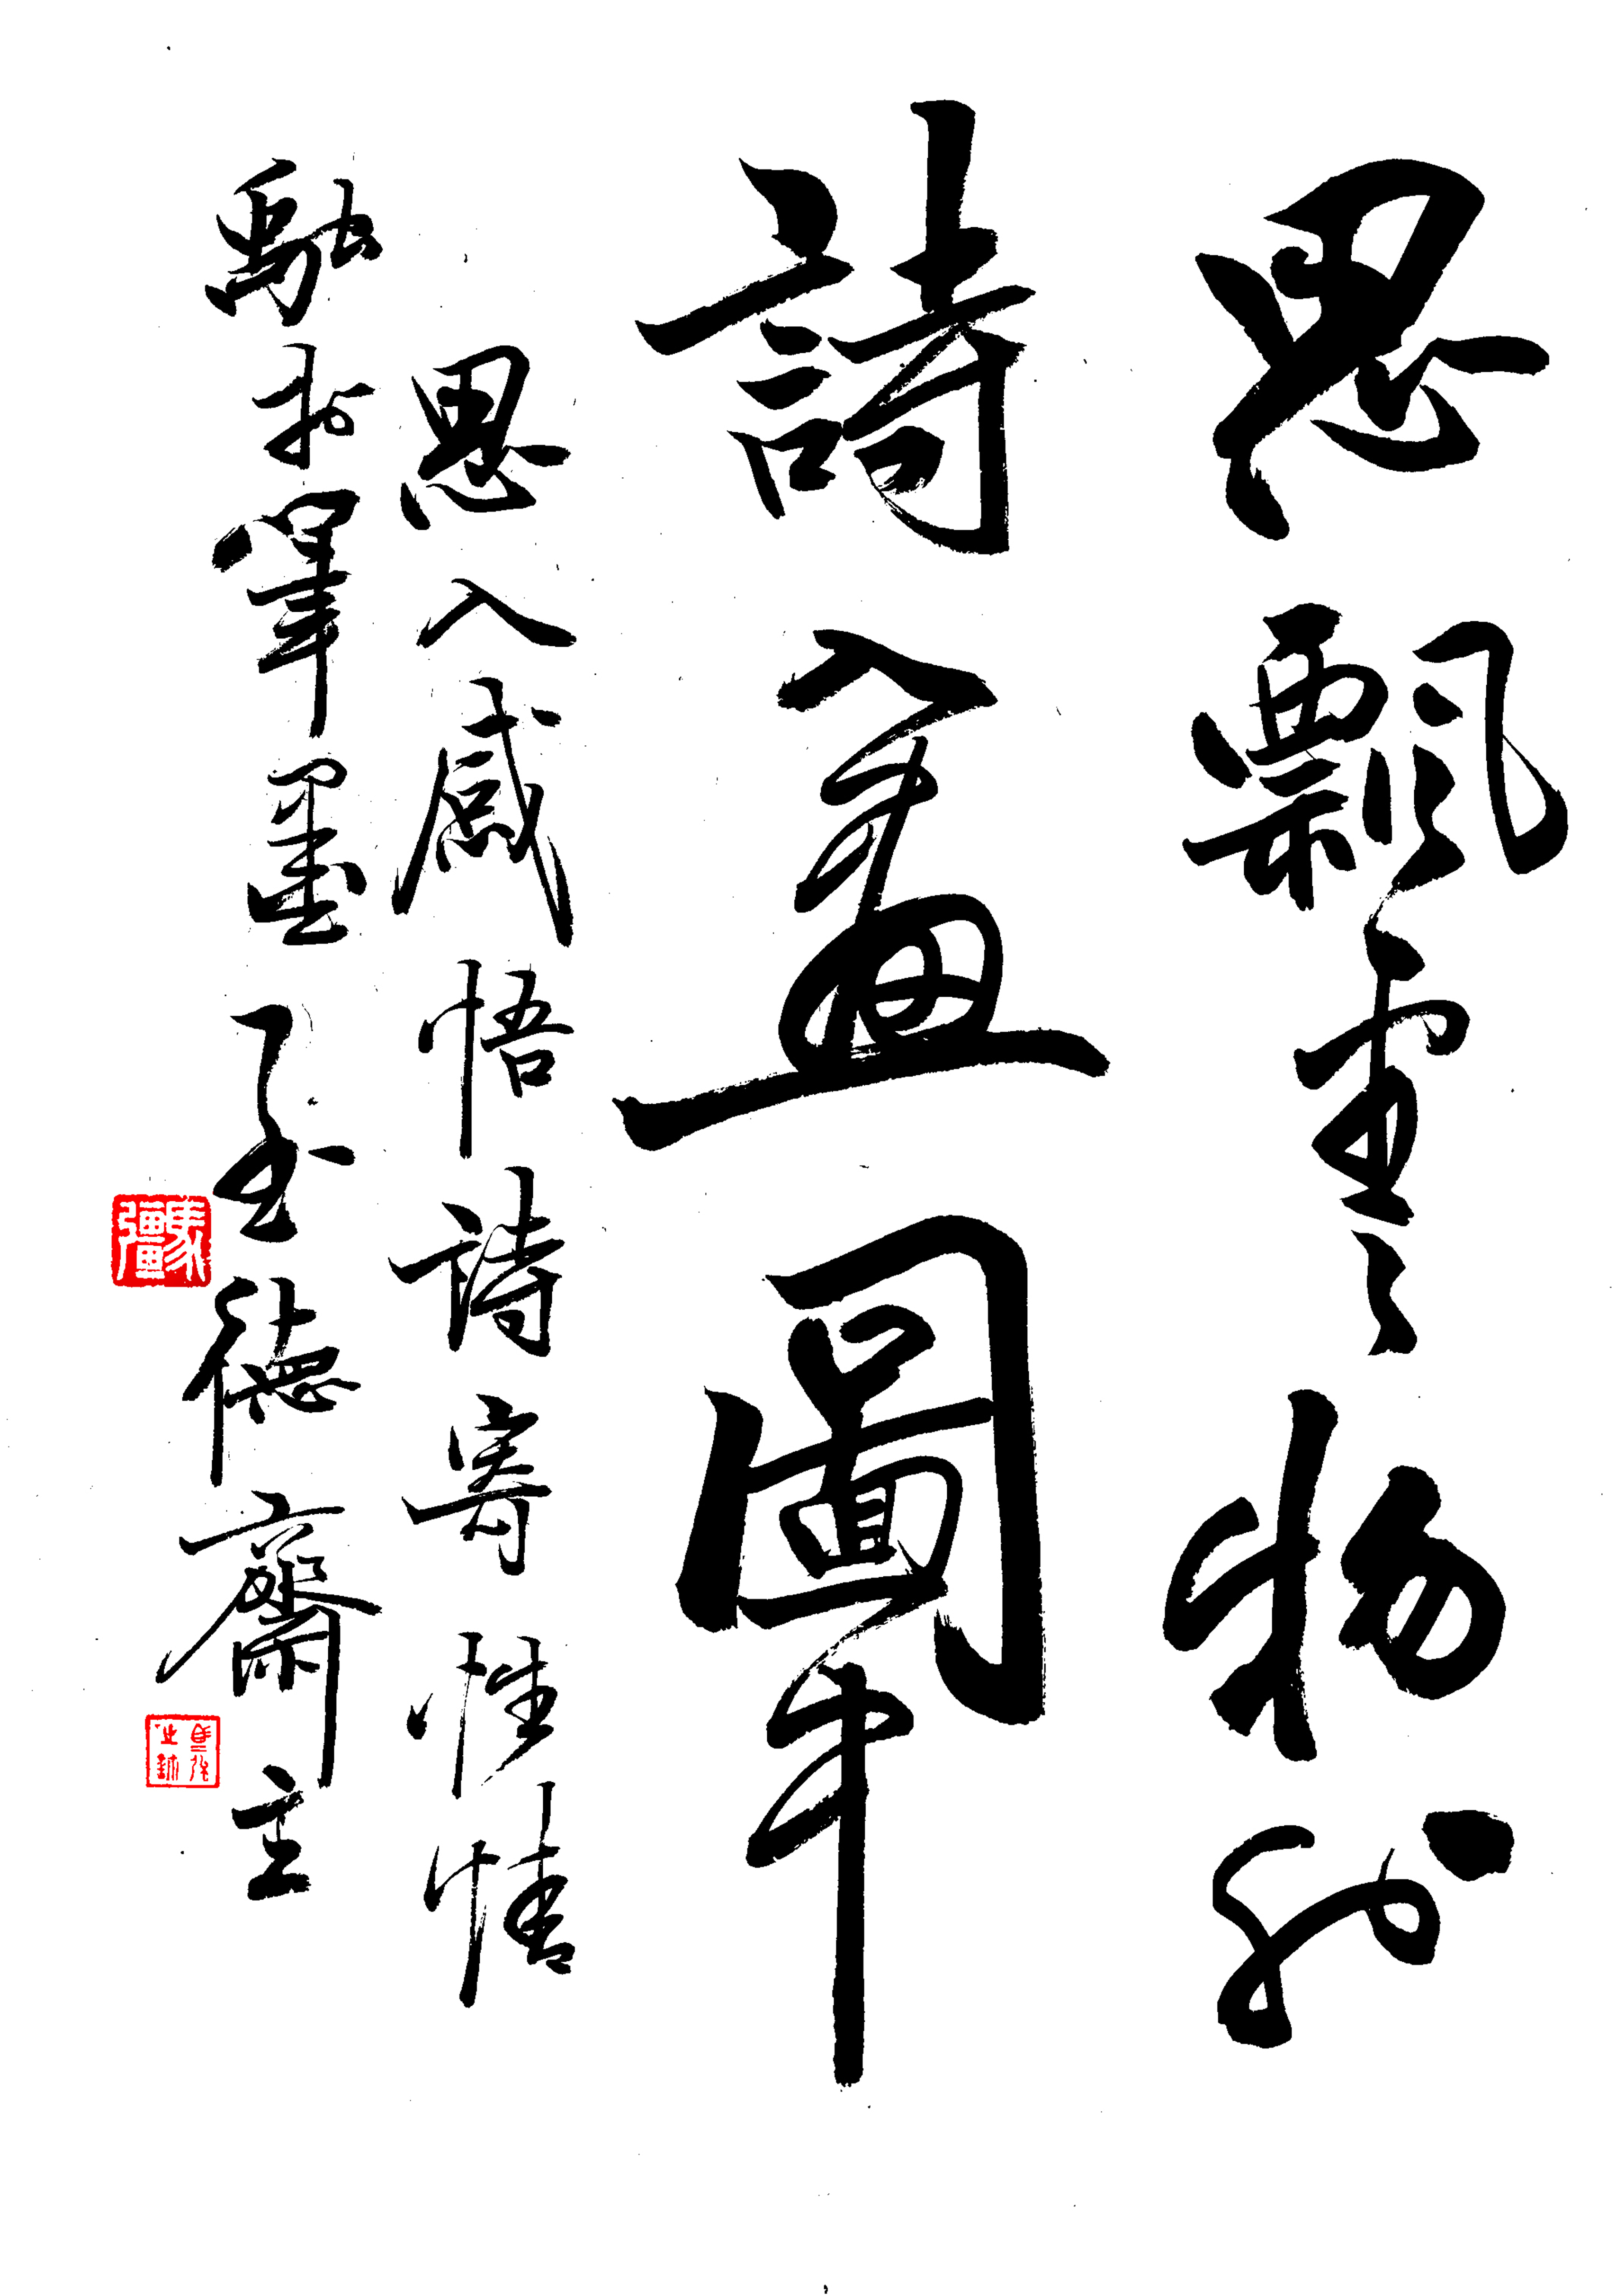 思飄雲物外
詩入畫圖中
思入感悟詩寄性情
馳於筆墨至德齋主